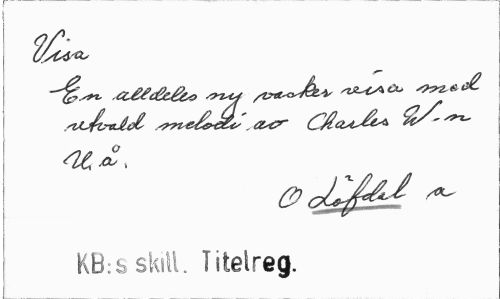 Visa
En alldeles ny vacker visa med
utvald melodi av Charles W-n
U. å.
O Löfdal a
KB:s skill. Titelreg.